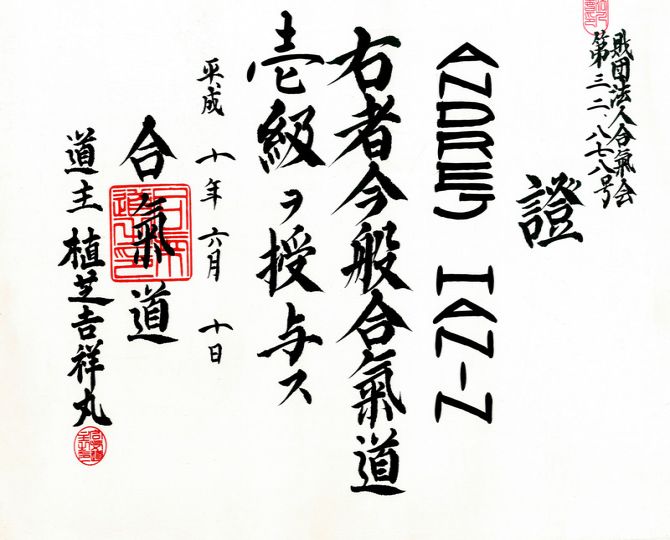 財団法人合氣会
第三二、八七八号
證
ANDREJ HANIN
右者今般合氣道
壱級ヲ授与ス
平成十年六月十日
合氣道
道主 植芝吉祥丸